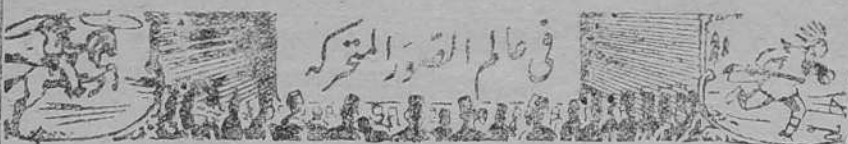 في عالم الصور المتحركه